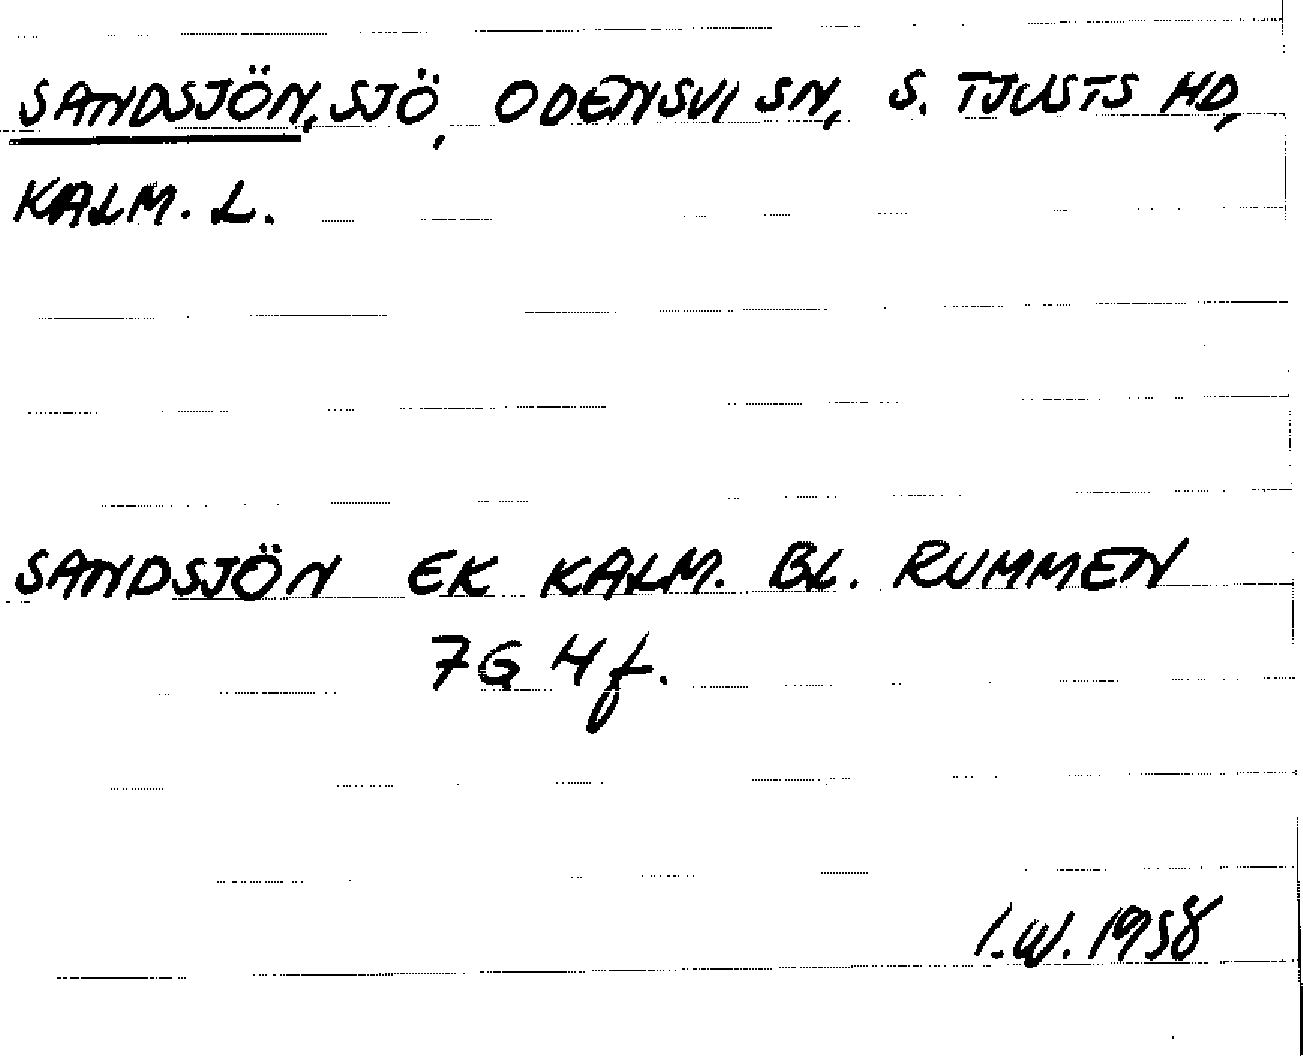 SANDSJÖN, SJÖ, ODENSVI SN, S. TJUSTS HD,
KALM. L.
SANDSJÖN EK KALM. BL. RUMMEN
7G Hf.
I.W. 1958